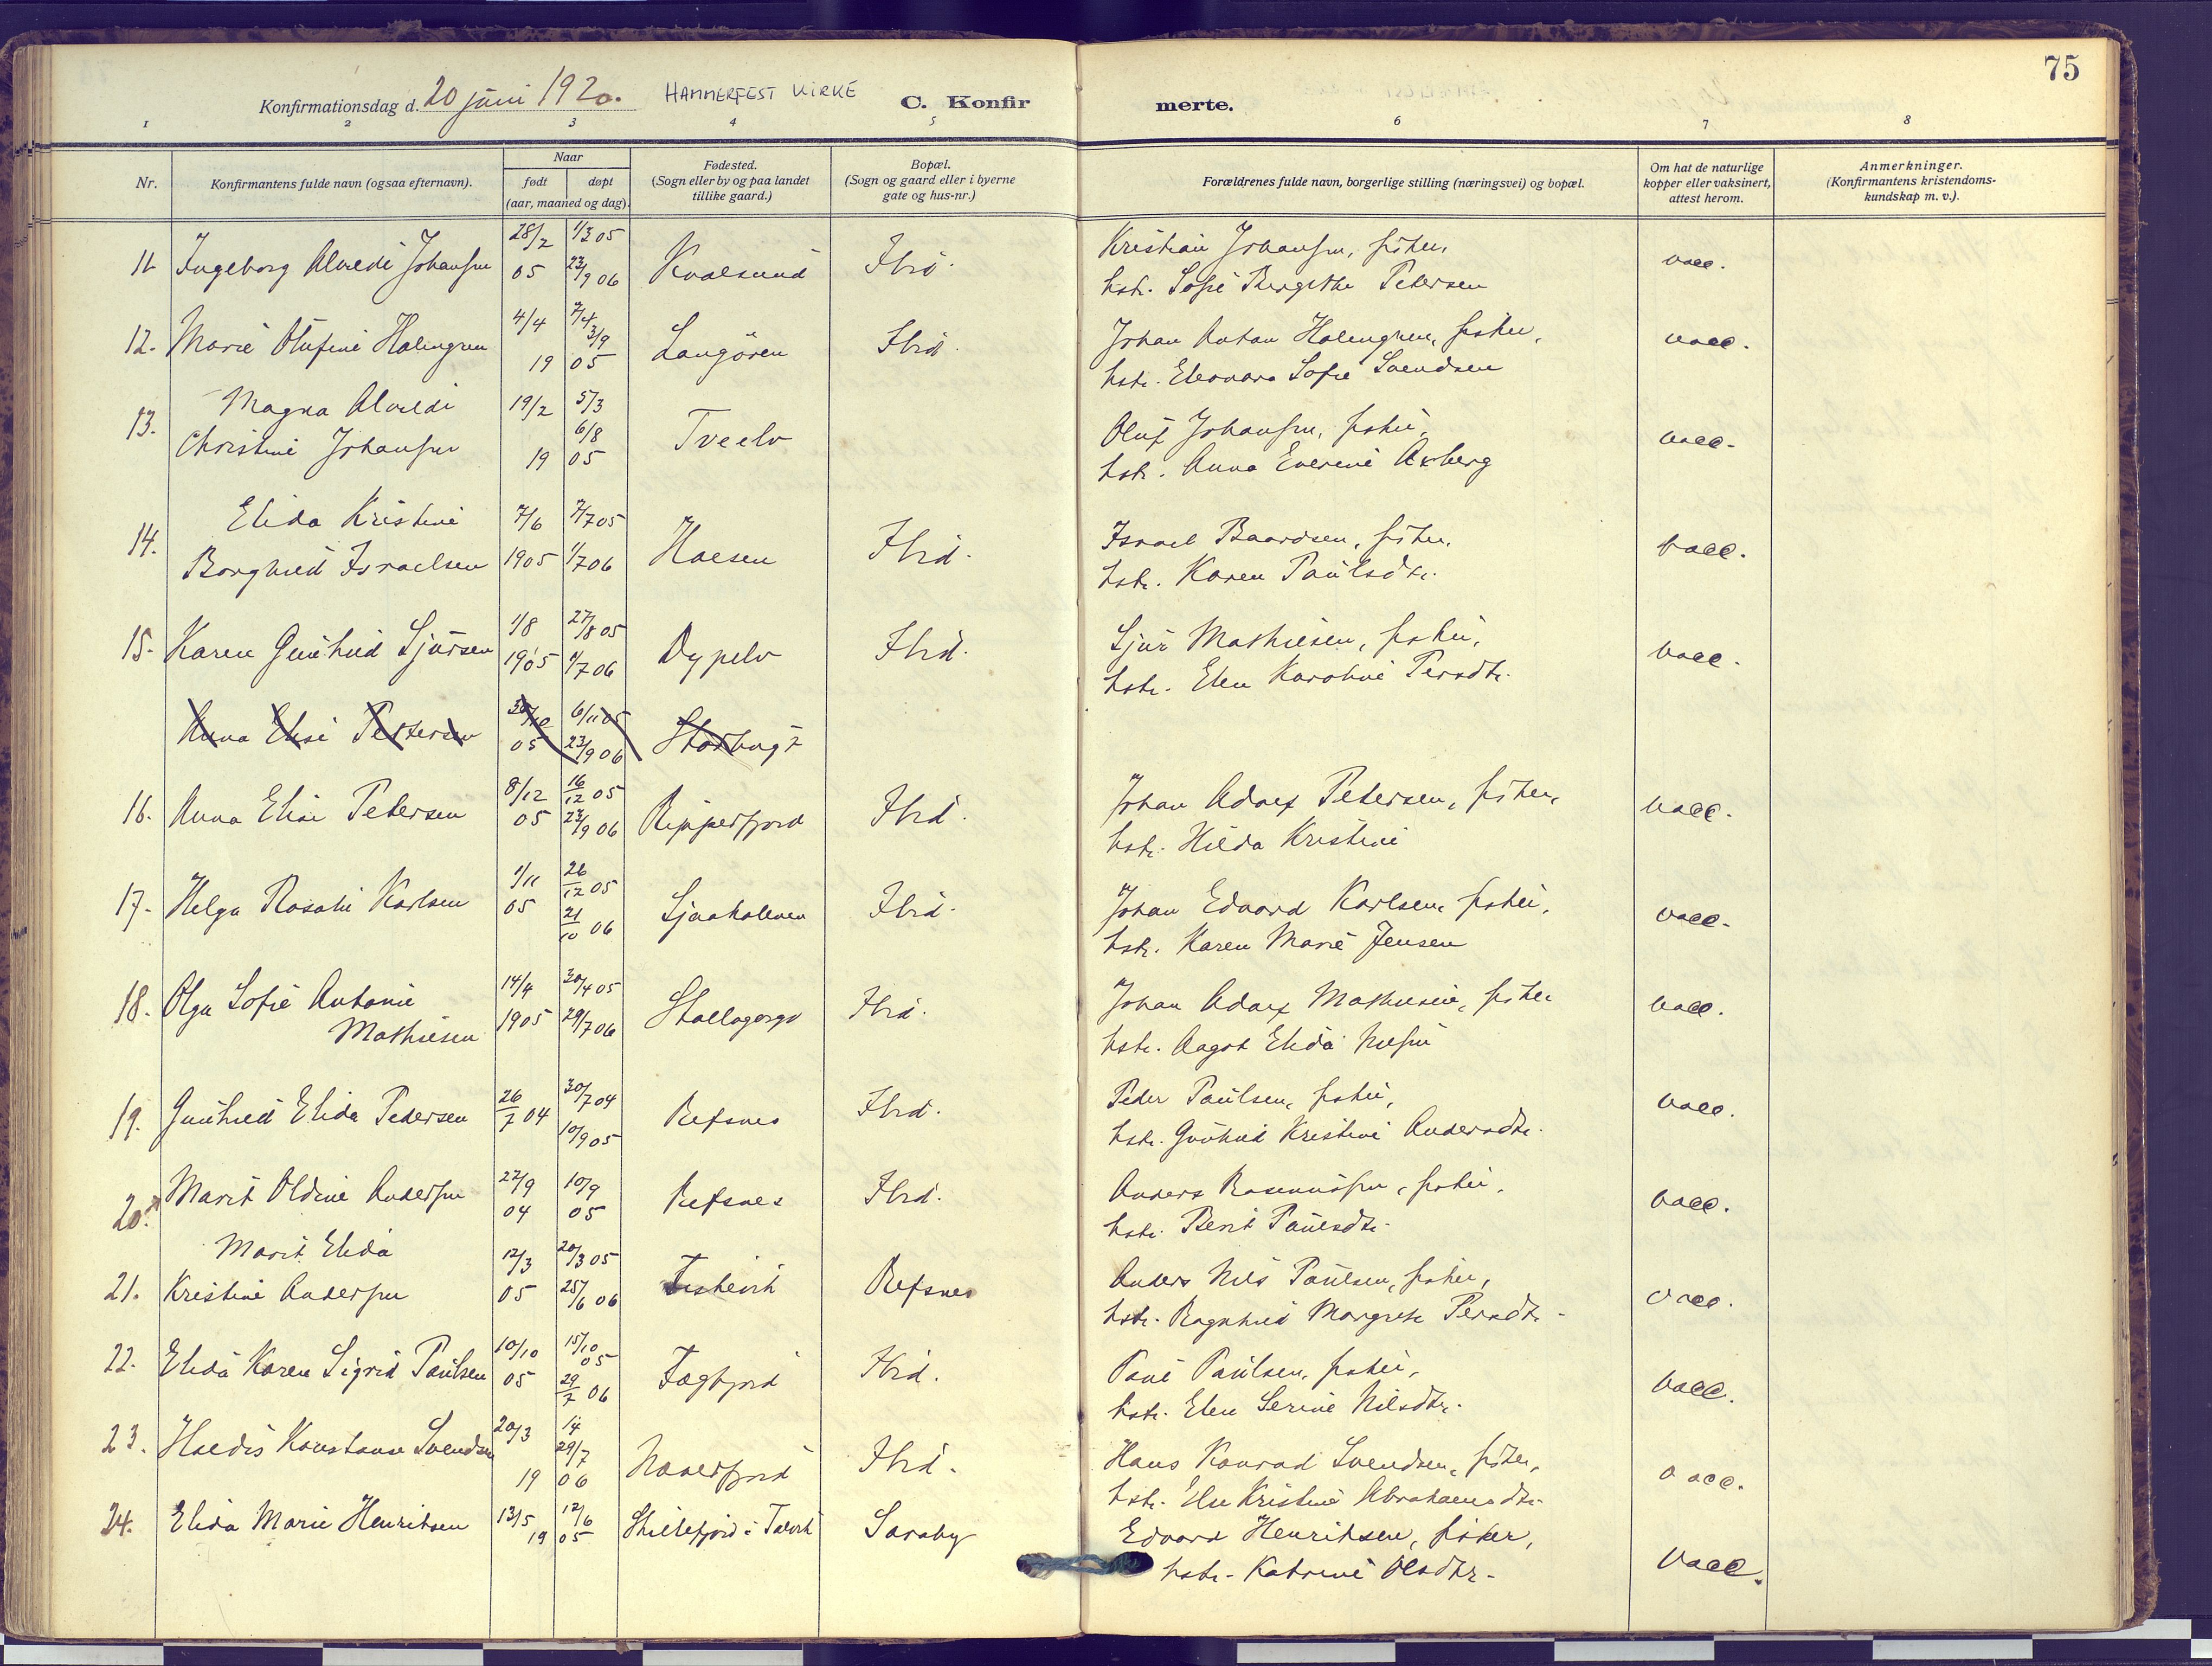 75
Konfirmationsdag d. 20 juni 1920. HAMMERFEST KIRKE C. Konfirmerte.
1 2 3 4 5 6 7 8
Nr.
Konfirmantens fulde navn (ogsaa efternavn).
Naar
født døpt
(aar, maaned og dag).
Fødested.
(Sogn eller by og paa landet
tillike gaard.)
Bopæl.
(Sogn og gaard eller i byerne
gate og hus-nr.)
Forældrenes fulde navn, borgerlige stilling (næringsvei) og bopæl.
Om hat de naturlige
kopper eller vaksinert,
attest herom.
Anmerkninger.
(Konfirmantens kristendoms-
kundskap m. v.).
28/2 1/3 05 Kristian Johansen, fisker,
11 Ingeborg Alvilde Johansen 05 23/9 06 Kvalsund Ibid. vacc.
hstr. Sofie Bergithe Petersen
4/4 7/4 3/9 Johan Anton Holmgren, fisker,
12. Marie Olufine Holmgren 19 05 Langören Ibid. vacc.
hstr. Eleonora Sofie Svendsen
Magna Alvilde 19/2 5/3
13. 6/8 Oluf Johansen, fisker, vacc.
Christine Johansen 19 05 Tveelv
hstr. Anna Everine Axberg
Elida Kristine 7/6 7/7 05 Israel Baardsen, fisker,
14. Borghild Israelsen 1905 1/7 06 Ibid. vacc.
hstr. Karen Paulsdtr.
1/8 27/8 05 Sjur Mathisen, fisker,
15. Karen Gunhild Sjursen 1905 1/7 06 Dypelv Ibid. vacc.
hstr. Elen Karoline Persdtr.
30/10 6/11 05
Anna Elise Pettersen 05 23/9 06
8/12 16/12 05 Johan Adolf Petersen, fisker,
16. Anna Elise Petersen 05 23/9 06 Ripperfjord Ibid. vacc.
hstr. Hilda Kristine
1/11 26/12 05 Johan Edvard Karlsen, fisker,
17. Helga Rosalie Karlsen 05 21/10 06 Sjaaholmen Ibid. vacc.
hstr. Karen Marie Jensen
14/4 30/4 05 Johan Adolf Mathisen, fisker
18. Olga Sofie Antonie 1905 29/7 06 Stallogargo Ibid. vacc.
Mathisen hstr. Aagot Elida Nilsen
26/7 04 30/7 04 Peder Paulsen, fisker,
19. Gunhild Elida Pedersen 10/9 05 Refsnes Ibid. vacc.
hstr. Gunhild Kristine Andersdtr.
22/9 10/9 Anders fisker,
20. Marit Oldine Andersen 04 05 Refsnes Ibid. vacc.
hstr. Berit Paulsdtr.
Marit Elida 12/3 20/3 05 Anders Nils Paulsen, fisker,
21. Kristine Andersen 05 25/6 06 Refsnes vacc.
hstr. Ragnhild Margrete Persdtr.
10/10 15/10 05 Paul Paulsen, fisker,
22. Elida Karen Sigrid Paulsen 05 29/7 06 Fægfjord Ibid. vacc.
hstr. Elen Serine Nilsdtr.
20/3 14 29/7 Hans Konrad Svendsen, fisker,
23. Haldis Konstanse Svendsen 19 06 Ibid. vacc.
hstr. Else Kristine Abrahamsdtr.
24. Elida Marie Henriksen 13/5 12/6 Skillefjord i Talvik Saraby Edvard Henriksen, fisker,
19 05 hstr. Katrine Olsdtr. vacc.